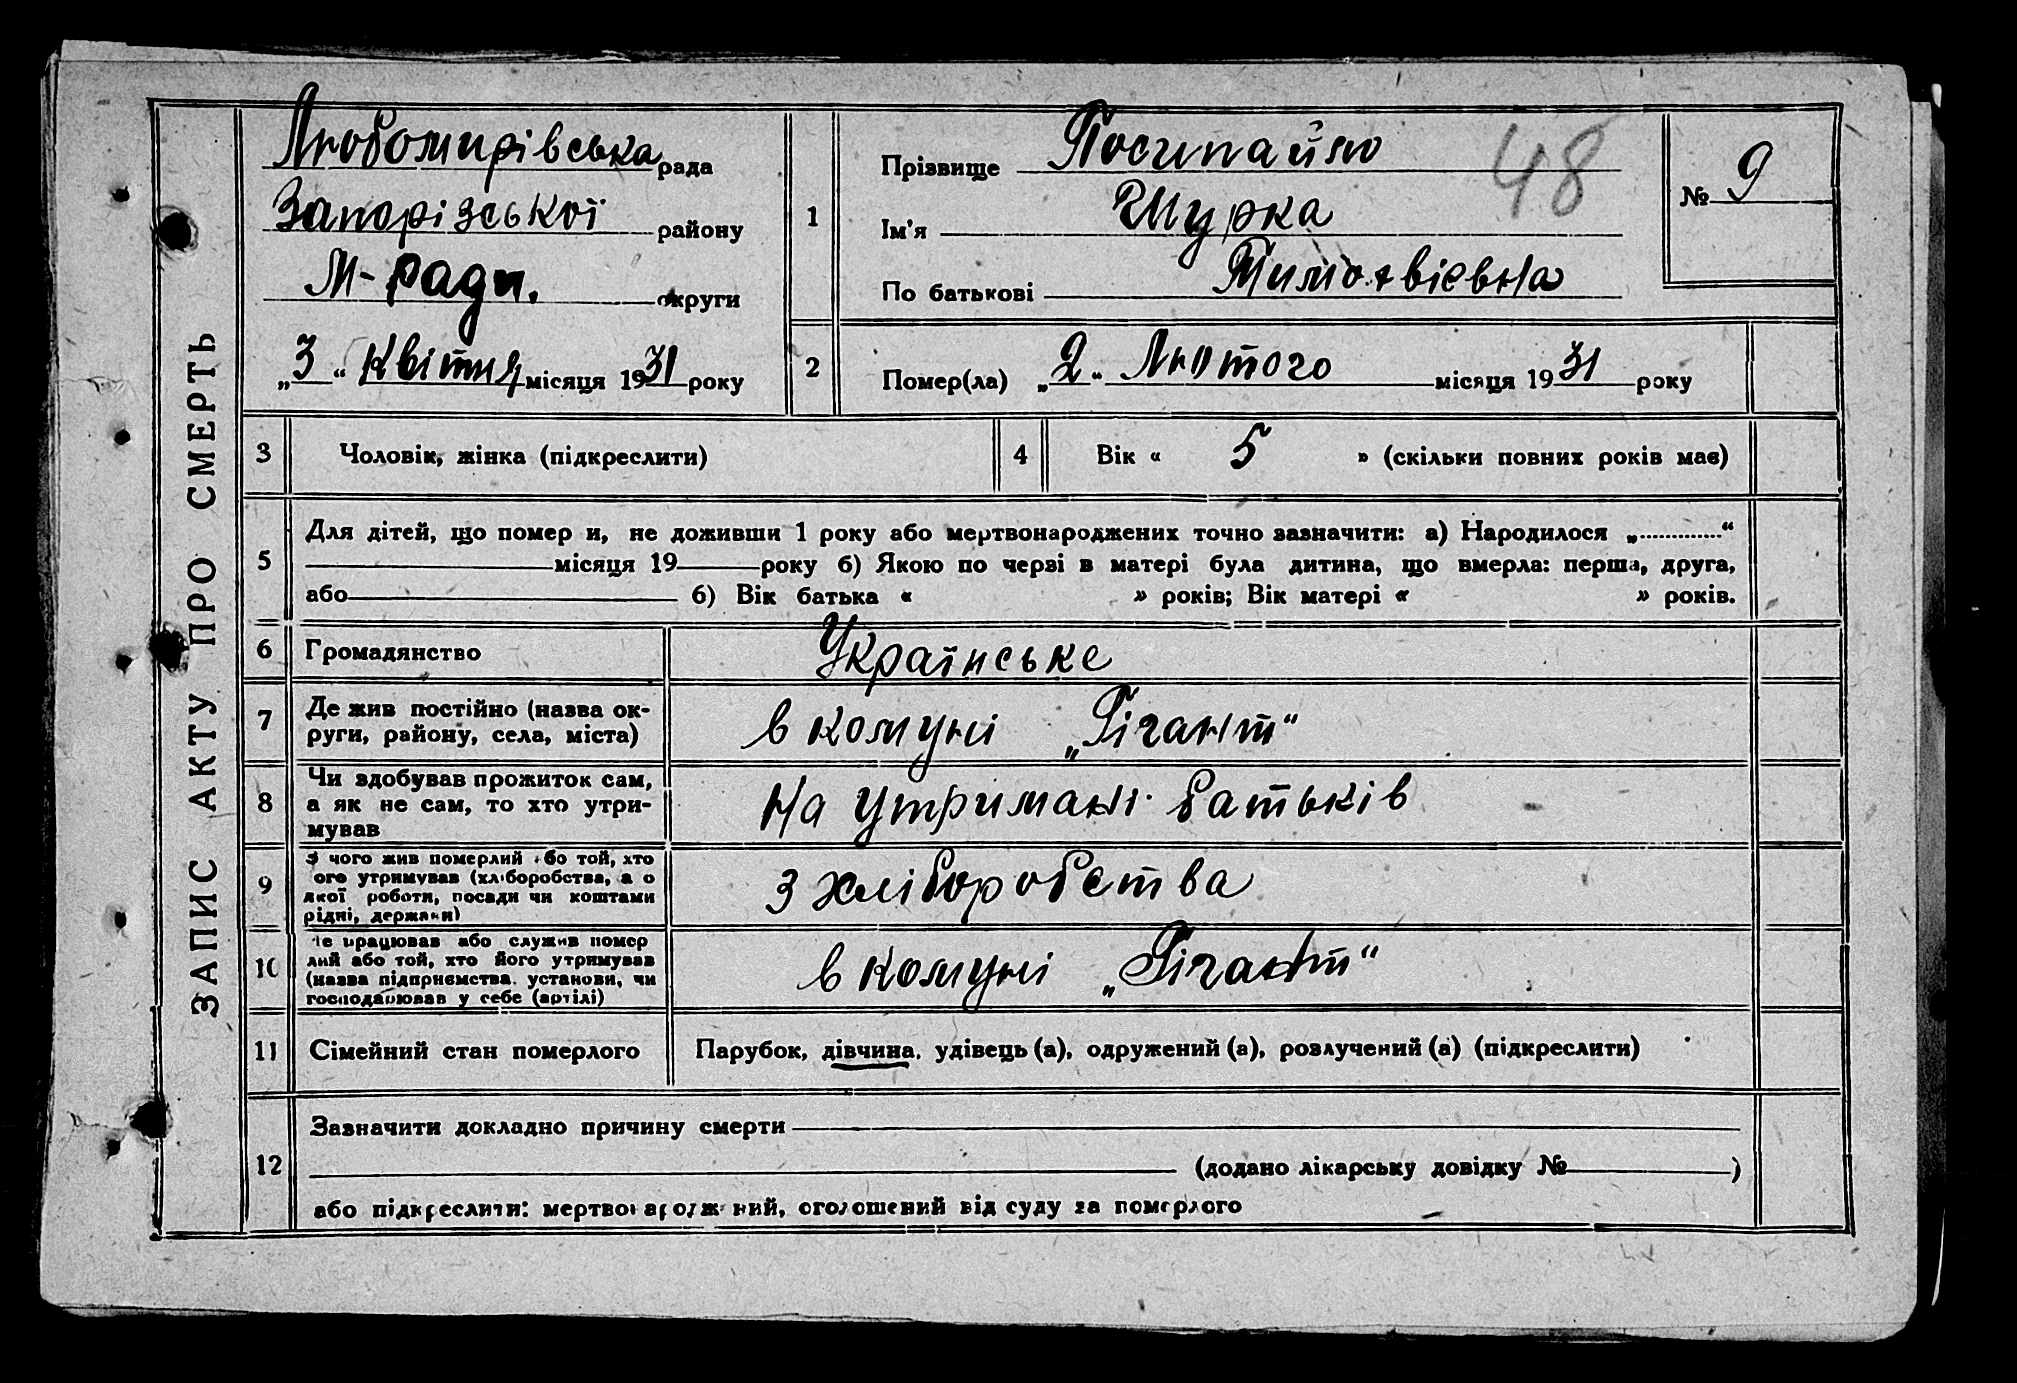 ЗАПИС АКТУ ПРО СМЕРТЬ
Любомирівська рада
Запорізської району
М-ради. округи
„3“ Квітня місяця 1931 року
1
Прізвище Посипайло
48
Ім'я Шурка
По батькові Тимофвієвна
№ 9
2
Помер(ла) „2“ Лютого місяця 1931 року
3 Чоловік, жінка (підкреслити)
4 Вік « 5 » (скільки повних років має)
5
Для дітей, що помер и, не доживши 1 року або мертвонароджених точно зазначити: а) Народилося „.............“
місяця 19 року б) Якою по черзі в матері була дитина, що вмерла: перша, друга,
або б) Вік батька « » років; Вік матері « » років.
6 Громадянство Українське
7 Де жив постійно (назва ок-
руги, району, села, міста)
в комуні „Гігант“
8 Чи здобував прожиток сам,
а як не сам, то хто утри-
мував
На утримані батьків
9 З чого жив померлий або той, хто
ого утримував (хліборобства, а о
якої роботи, посади чи коштами
рідні, держави)
З хліборобства
10 Де працював або служив помер
лий або той, хто його утримував
(назва підприємства, установи, чи
господарював у себе (артілі)
в комуні „Гігант“
11 Сімейний стан померлого Парубок, дівчина, удівець (а), одружений (а), розлучений (а) (підкреслити)
12
Зазначити докладно причину смерти
(додано лікарську довідку № )
або підкреслити: мертвонароджений, оголошений від суду за померлого